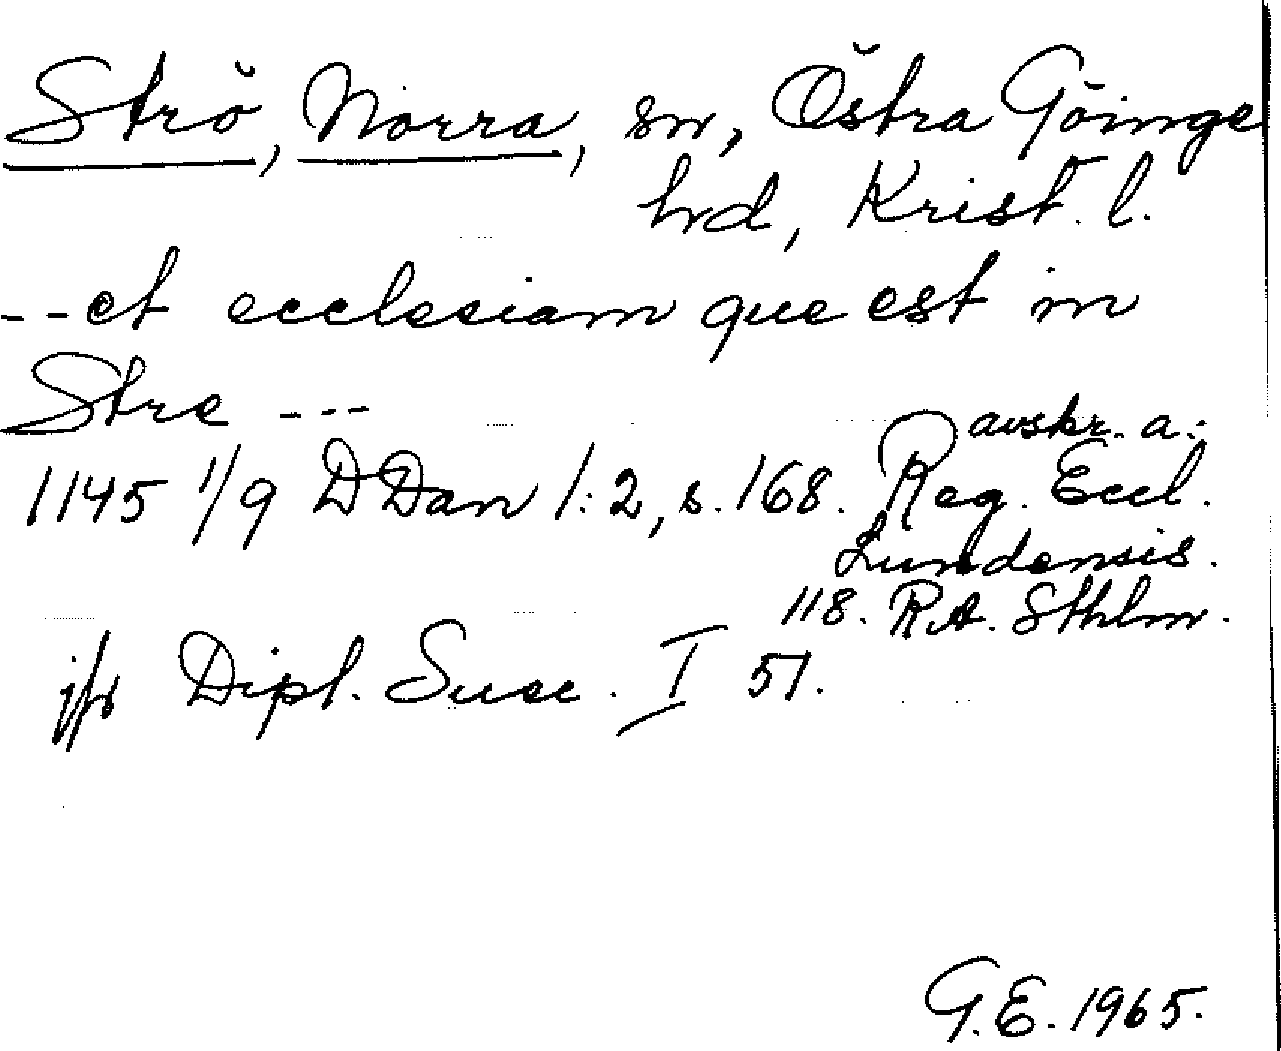 Strö, Norra, sn, Östra Göinge
hd, Krist. l.
--et ecclesiam que est in
Stre ---
avskr. a.
1145 1/9 DDan 1:2, s. 168. Reg. Eccl.
Lundensis.
118. RA. Sthlm.
jfr Dipl. Suec. I 51.
G.E. 1965.